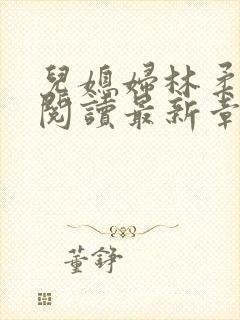 兒媳婦林柔
閱讀最新章
董錚